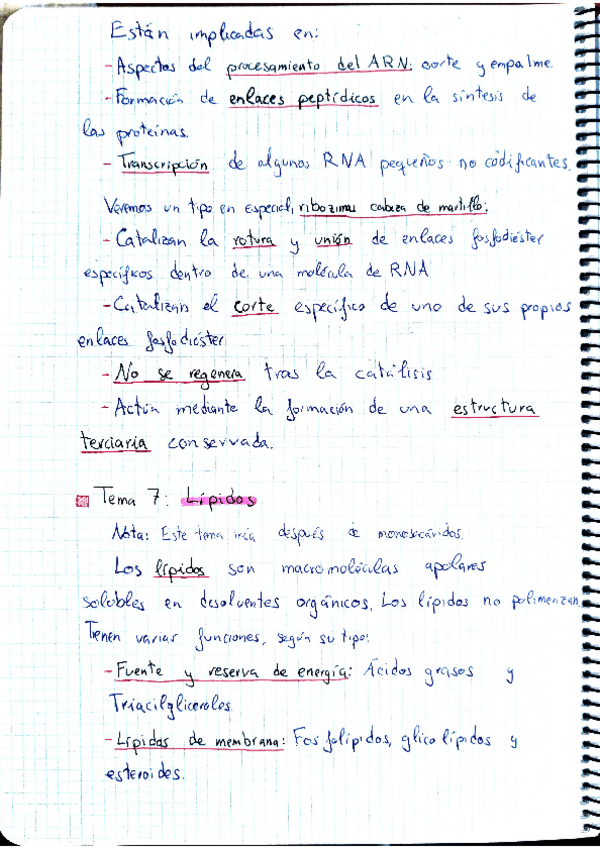 Están implicadas en:
- Aspectos del procesamiento del ARN: corte y empalme.
- Formación de enlaces peptídicos en la síntesis de
las proteínas.
- Transcripción de algunos RNA pequeños no codificantes.
Veremos un tipo en especial, ribozimas cabeza de martillo:
- Catalizan la rotura y unión de enlaces fosfodiéster
específicos dentro de una molécula de RNA
- Catalizan el corte específico de uno de sus propios
enlaces fosfodiéster
- No se regenera tras la catálisis
- Actún mediante la formación de una estructura
terciaria conservada.
Tema 7: Lípidos
Nota: Este tema iría después de monosacáridos.
Los lípidos son macromoléculas apolares
solubles en disolventes orgánicos. Los lípidos no polimerizan.
Tienen varias funciones, según su tipo:
- Fuente y reserva de energía: Ácidos grasos y
Triacilgliceroles.
- Lípidos de membrana: Fosfolípidos, glicolípidos y
esteroides.